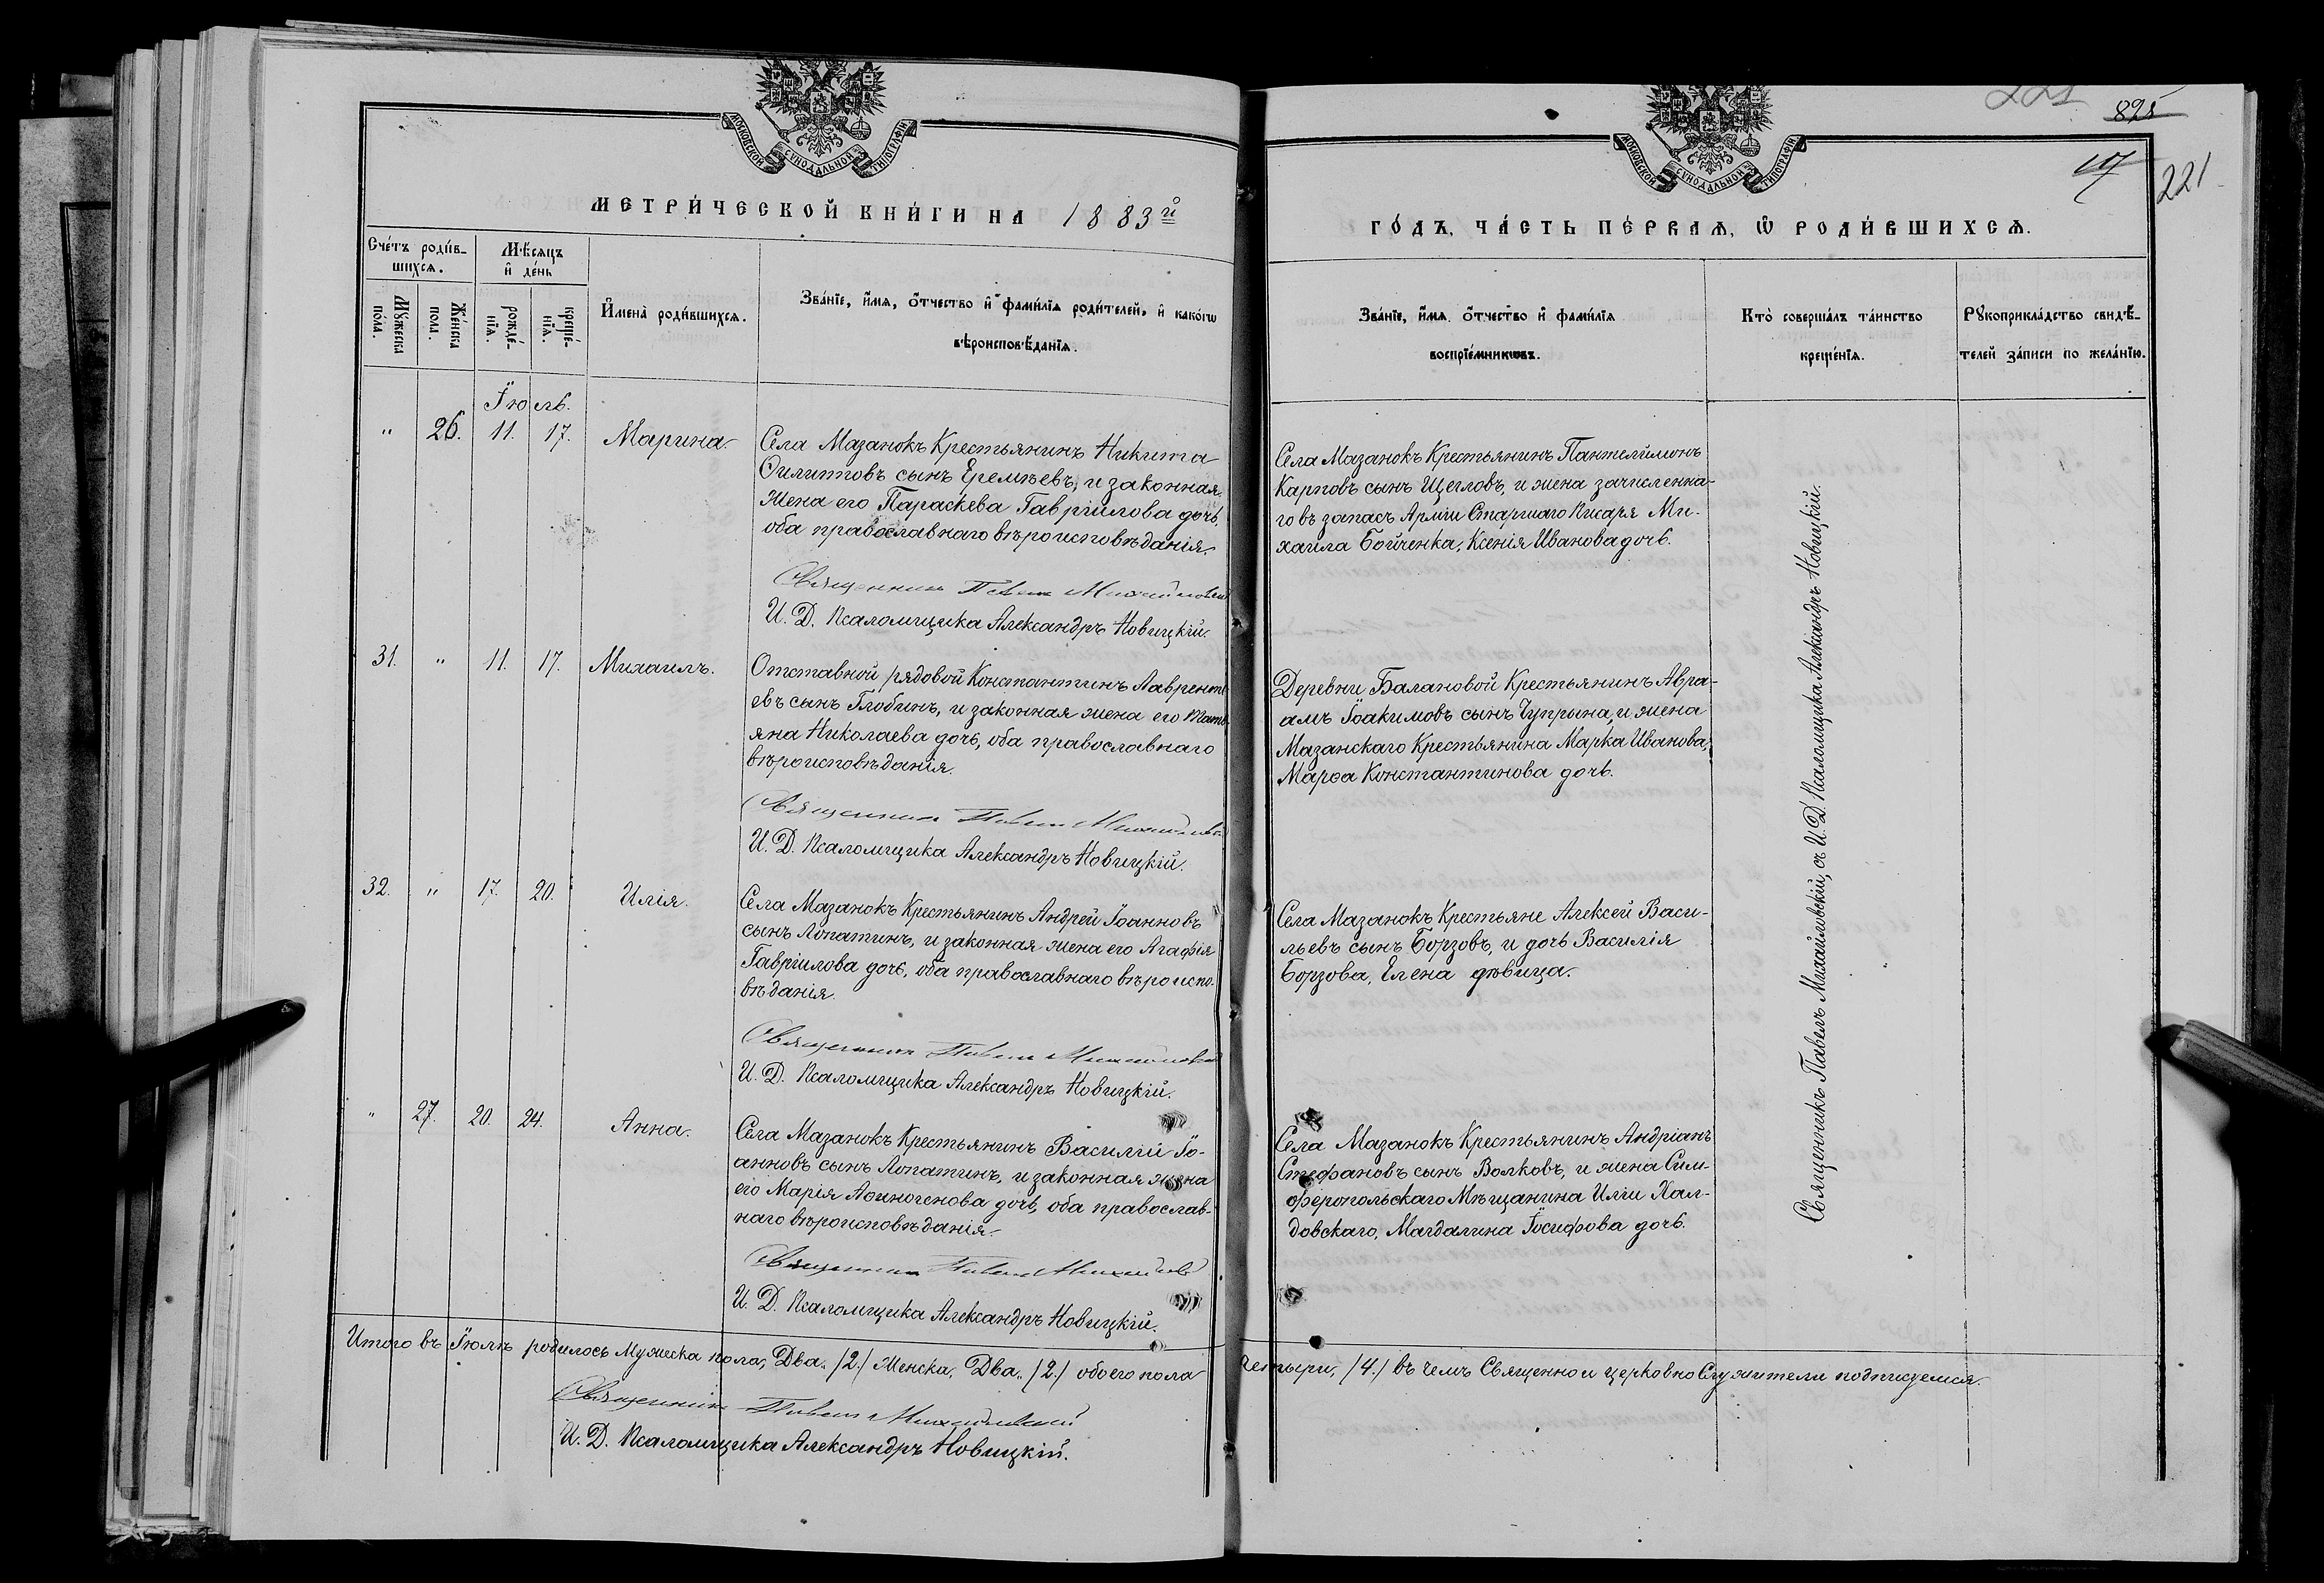 МОСКОВСКОЙ СѴНОДАЛЬНОЙ ТИПОГРАФІИ
МЕТРИ́ЧЕСКОЙ КНИ́ГИ НА 1883й
Сче́тъ роди́в-
шихсѧ.
Мѣ́сѧцъ
и҆ де́нь
Мꙋ́жеска
по́ла.
Же́нска
пола.
рожде́-
нїѧ.
креще́-
нїѧ.
И҆мена̀ роди́вшихсѧ.
Зва́нїе, и҆́мѧ, ѻ҆́тчество и҆ фами́лїѧ роди́телей, и҆ како́гѡ
вѣроисповѣ́данїѧ.
Іюль.
" 26. 11. 17. Марина.
Села Мазанокъ Крестьянинъ Никита
Филитовъ сынъ Еремѣевъ, и законная
жена его Параскева Гавріилова дочь,
оба православнаго вѣроисповѣданія.
Священникъ Павелъ Михайловскій
И. Д. Псаломщика Александръ Новицкій.
31. " 11. 17. Михаилъ.
Отставной рядовой Константинъ Лавренті
евъ сынъ Глобинъ, и законная жена его Тать
яна Николаева дочь, оба православнаго
вѣроисповѣданія.
Священникъ Павелъ Михайловскій
И. Д. Псаломщика Александръ Новицкій.
32. " 17. 20. Илія.
Села Мазанокъ Крестьянинъ Андрей Іоанновъ
сынъ Лопатинъ, и законная жена его Агафія
Гавріилова дочь, оба православнаго вѣроиспо-
вѣданія.
Священникъ Павелъ Михайловскій
И. Д. Псаломщика Александръ Новицкій.
" 27. 20. 24. Анна.
Села Мазанокъ Крестьянинъ Василій Іо-
анновъ сынъ Лопатинъ, и законная жена
его Марія Аѳиногенова дочь, оба православ-
наго вѣроисповѣданія.
Священникъ Павелъ Михайловскій
И. Д. Псаломщика Александръ Новицкій.
Итого въ Іюлѣ родилось Мужеска пола, Два, /2./ Женска, Два, /2./ обоего пола
Священникъ Павелъ Михайловскій
И. Д. Псаломщика Александръ Новицкій.
221
825
117
221
МОСКОВСКОЙ СѴНОДАЛЬНОЙ ТИПОГРАФІИ
ГО́ДЪ, ЧА́СТЬ ПЕ́РВАѦ, Ѡ҆ РОДИ́ВШИХСѦ.
Зва́нїе, и҆́мѧ, ѻ҆́тчество и҆ фами́лїѧ
воспрїе́мникѡвъ.
Кто̀ соверша́лъ та́инство
креще́нїѧ.
Рꙋкоприкла́дство свидѣ́-
телей за́писи по жела́нїю.
Села Мазанокъ Крестьянинъ Пантелимонъ
Карповъ сынъ Щегловъ, и жена зачисленна-
го въ запасъ Арміи Старшаго Писаря Ми-
хаила Бойченка, Ксенія Иванова дочь.
Деревни Балановой Крестьянинъ Авра-
амъ Іоакимовъ сынъ Чупрына, и жена
Мазанскаго Крестьянина Марка Иванова,
Марѳа Константинова дочь.
Села Мазанокъ Крестьяне Алексей Васи-
льевъ сынъ Борзовъ, и дочь Василія
Борзова, Елена дѣвица.
Села Мазанокъ Крестьянинъ Андріанъ
Стефановъ сынъ Волковъ, и жена Сим-
феропольскаго Мѣщанина Иліи Хал-
довскаго, Магдалина Іосифова дочь.
Священникъ Павелъ Михайловскій, съ И. Д. Псаломщика Александръ Новицкій.
четыри, /4./ въ чемъ Священно и церковно Служители подписуемся.